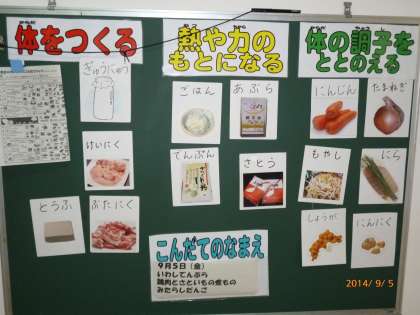 体をつくる
熱や力の
もとになる
体の調子を
ととのえる
ぎゅうにゅう
ごはん
あぶら
にんじん
たまねぎ
けいにく
てんぷん
さとう
もやし
にら
とうふ
ぶたにく
しょうが
にんにく
こんだてのなまえ
9月5日（金）
いわしてんぷら
鶏肉とさといもの煮もの
みたらしだんご
2014/9/5